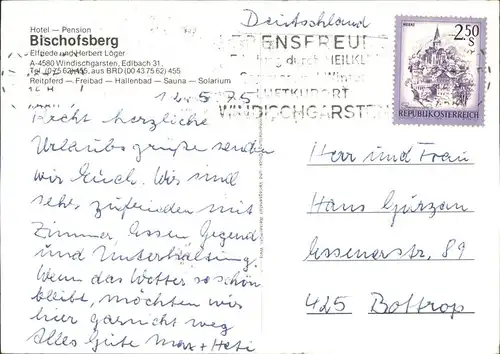 Hotel — Pension
Bischofsberg
Elfgede und Herbert Löger
A-4580 Windischgarsten, Edlbach 31,
Tel. (0 75 62) 455, aus BRD (00 43 75 62) 455
Reitpferd — Freibad — Hallenbad — Sauna — Solarium
Deutschland
BENSFREUDE
durch HEILKL
und Winter
LUFTKURORT
WINDISCHGARSTEN
2.50
S
REPUBLIK ÖSTERREICH
12.5.75
Recht herzliche
Urlaubsgrüße senden
wir Euch. Wir sind
sehr zufrieden mit
Zimmer, Essen Gegend
und Unterhaltung.
Wenn das Wetter so schön
bleibt, möchten wir
hier garnicht weg
Alles Gute Max + Heti
Herr und Frau
Hans Gurzan
Essenerstr. 89
425 Bottrop